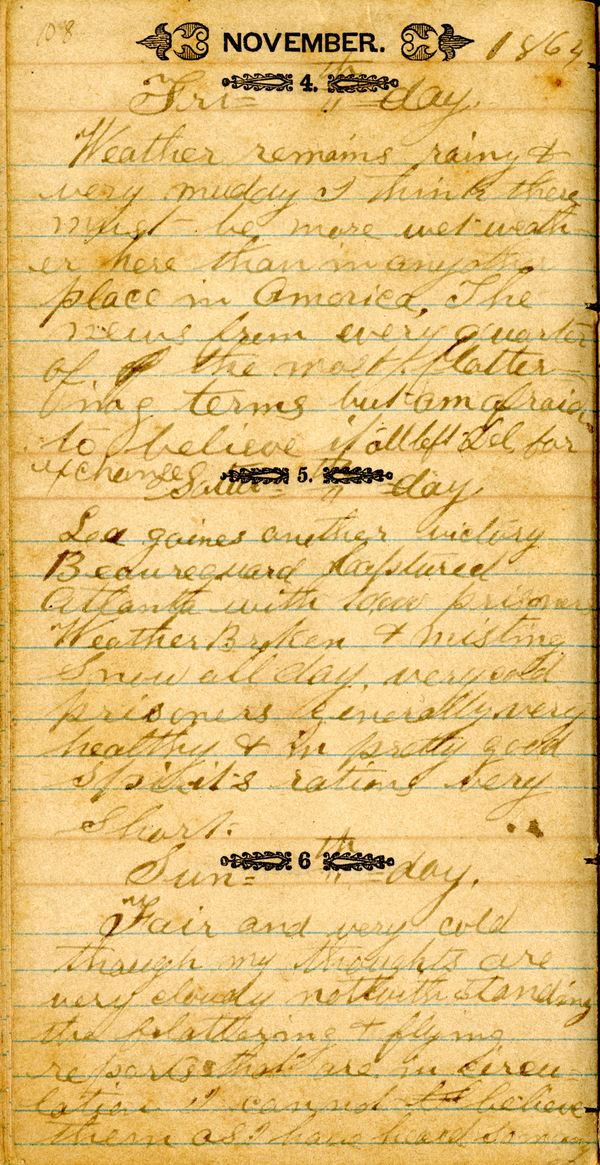 108
NOVEMBER. 1864
4.
Fri= th =day.
Weather remains rainy &
very muday I think there
must be more wet weath
er here than in any other
place in America, The
news from every quarter
of the most flatter
ing terms but am afraid
to believe it all left Del, for
exchange
5.
Satur= th =day
Lea gaines another victory
Beaureguard Captured
Atlanta with 1000 prisoners
Weather Broken & misting
Snow all day very cold
prisoners generally very
healthy & in pretty good
Spirits rations very
Short.
6
Sun= th =day.
Fair and very cold
though my thoughts are
very cloudy notwithstanding
the flattering & flying
reports that are in circu
lation I cannot believe
them as I have heard so